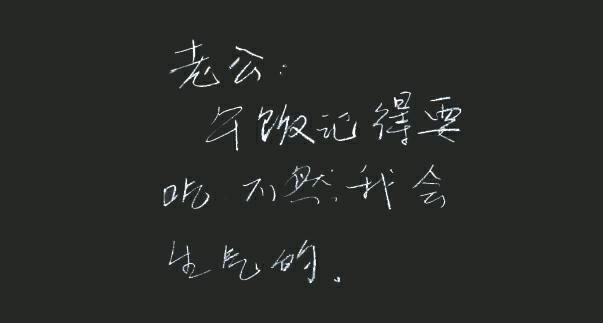 老公：
午饭记得要
吃 不然我会
生气的.